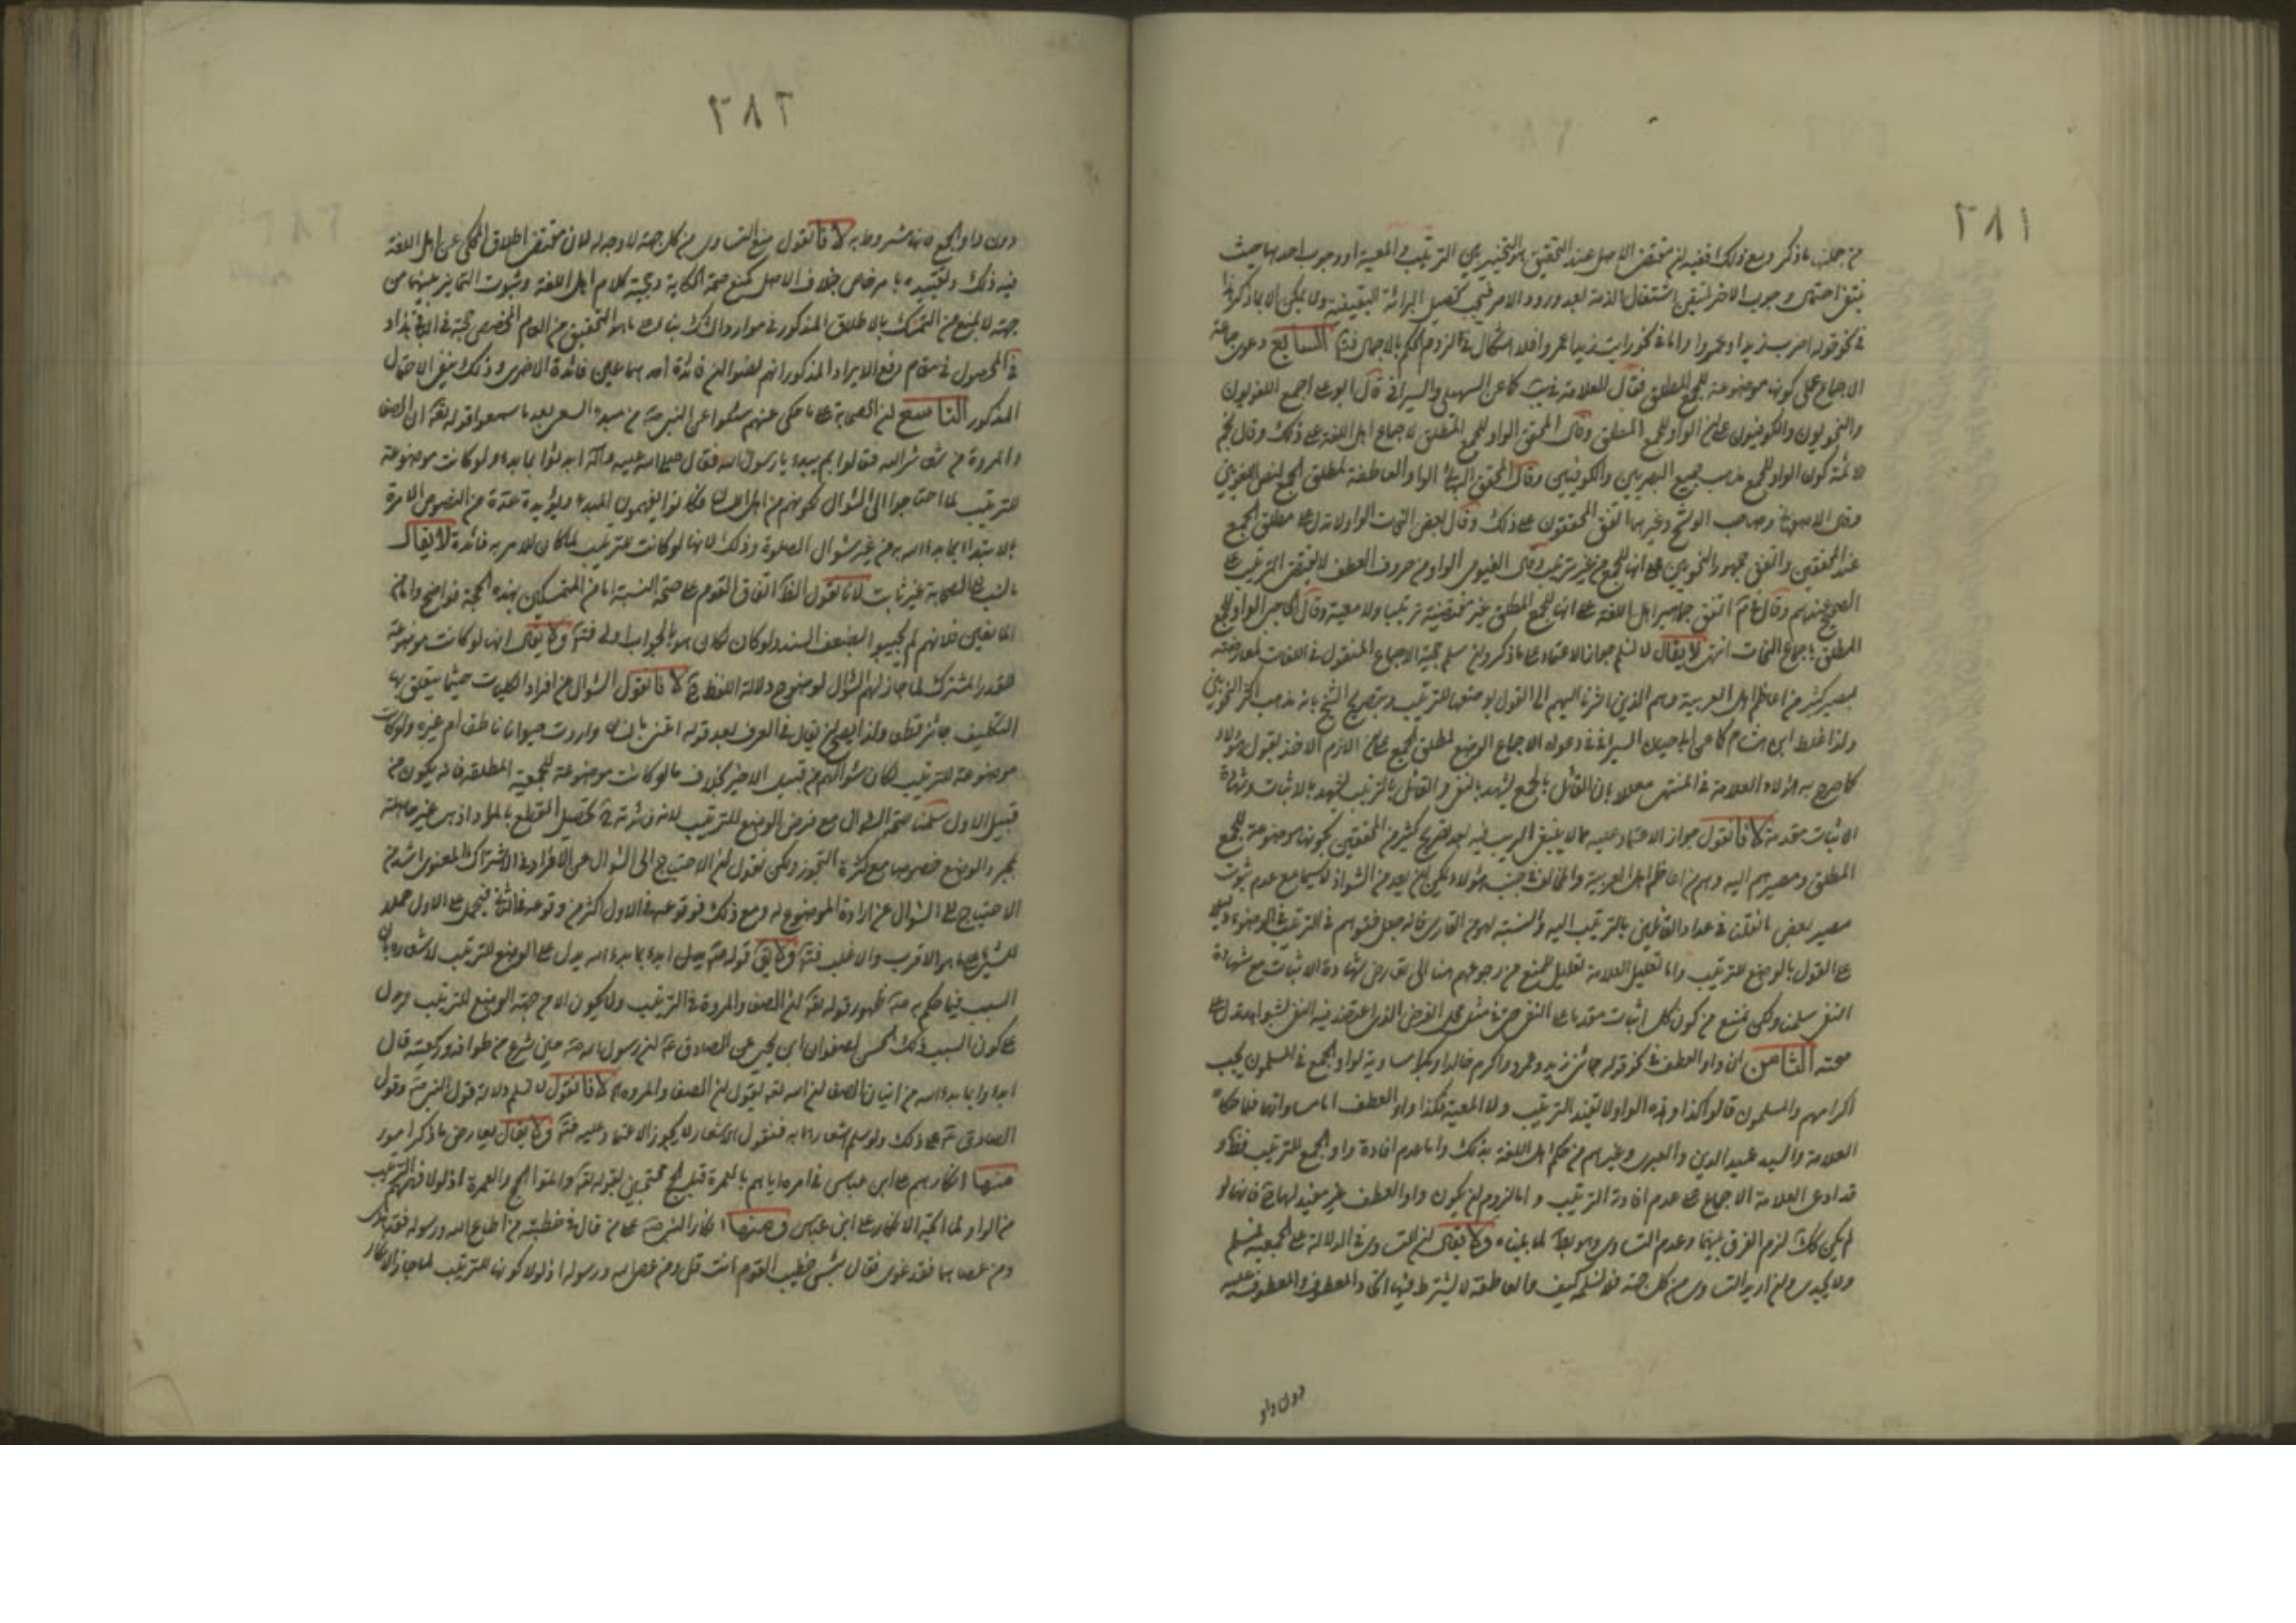 ٢٨١
من جملة ما ذكر ومع ذلك ففيه ان مقتضى الاصل عند التحقيق هو التخيير بين الترتيب والمعية او وجوب احدهما حيث
ينتفى احتمال وجوب الاخر لتيقن اشتغال الذمة بعد ورود الامر فيجب تحصيل البرائة اليقينية ولا يمكن الا بما ذكرنا
في نحو قوله اضرب زيدا وعمروا واما في نحو رايت زيدا عمروا فلا اشكال في لزوم الحكم بالاجمال السابع دعوى جماعة
الاجماع على كونها موضوعة للجمع المطلق فقال العلامة في كما عن السهيلى والسيرافى قال ابو على اجمع اللغويون
والنحويون والكوفيون على ان الواو للجمع المطلق وقال المحقق الواو للجمع المطلق لاجماع اهل اللغة على ذلك وقال نجم
الائمة كون الواو للجمع مذهب جميع البصريين والكوفيين وقال المحقق الواو العاطفة لمطلق الجمع
وقال الاصفهانى وصاحب وغيرهما اتفق المحققون على ذلك وقال بعض النحات الواو لا تدل على مطلق الجمع
عند المحققين واتفق جمهور النحويين على انها للجمع من غير ترتيب وقال الفيومى الواو من حروف العطف لا يقتضى الترتيب على
الصحيح عندهم وقال اتفق جماهير اهل اللغة على انها للجمع المطلق غير مقتضية ترتيبا ولا معية وقال الواو للجمع
المطلق باجماع النحات انتهى لا يقال لا نسلم جواز الاعتماد على ما ذكر وان سلم حجية الاجماع المنقول في اللغات لمعارضته
بمصير كثير من اعاظم اهل العربية وهم الذين اشرنا اليهم الى القول بوضعها للترتيب وبتصريح الشيخ بانه مذهب اكثر النحويين
ولذا غلط ابن هشام كما حكى السيرافى في دعواه الاجماع الوضع لمطلق الجمع اللازم الاخذ بقول هؤلاء
كما صرح به هؤلاء العلامة في المنتهى معللا بان القائل بالجمع يشهد بالنفى والقائل بالترتيب يشهد بالاثبات وشهادة
الاثبات مقدمة لانا نقول جواز الاعتماد عليه مما لا ينبغى الريب فيه بعد تصريح كثير من المحققين بكونها موضوعة للجمع
المطلق ومصيرهم اليه وهم من اعاظم اهل العربية والمخالف في جنب هؤلاء يمكن ان يعد من الشواذ لا سيما مع عدم ثبوت
مصير بعض ما نقلنا في عداد القائلين بالترتيب اليه
على القول بالوضع للترتيب واما تعليل العلامة تعليل للمنع من رجوعهم هنا الى تعارض شهادة الاثبات مع شهادة
النفى سلمنا ولكن نمنع من كون كل اثبات مقدما على النفى حتى في مثل محل الفرض الذى اعتضد فيه النفى بشواهد تدل على
صحته الثامن ان واو العطف في نحو قوله جائنى زيد وعمرو واكرم خالدا وبكرا مساوية لواو الجمع في المسلمون يجب
اكرامهم والمسلمون قالوا كذا وهذه الواو لا تفيد الترتيب ولا المعية فكذا واو العطف اما مساواتها فلما حكاه
العلامة والسيد عميد الدين والعبرى وغيرهم من حكم اهل اللغة بذلك واما عدم افادة واو الجمع للترتيب فظ و
قد ادعى العلامة الاجماع على عدم افادة الترتيب واما لزوم ان يكون واو العطف غير مفيد لها فانها لو
لم يكن كذلك لزم الفرق بينهما وعدم التساوى وهو بط لما بيناه ولا يقال ان التساوى في الدلالة على الجمعية مسلم
ولا يجدى وان اريد التساوى من كل جهة فلا نسلم كيف والعاطفة لا يشترط فيها اتحاد المعطوف والمعطوف عليه
دون واو
٢٨٢
دون واو الجمع فانها مشروط به لانا نقول منع التساوى من كل جهة لا وجه له لان مقتضى اطلاق المحكى عن اهل اللغة
فيه ذلك وتقييده بامر خاص خلاف الاصل كمنع صحة الحكاية وحجية كلام اهل اللغة وثبوت التمايز بينهما من
جهة لا يمنع من التمسك بالاطلاق المذكور في موارد الشك بناء على ما هو التحقيق من ان العام المخصص حجة في الباقى وزاد
في المحصول في مقام دفع الايراد المذكور انهم نصوا ان فائدة احدهما عين فائدة الاخرى وذلك ينفى الاحتمال
المذكور التاسع ان الصحابة على ما حكى عنهم سئلوا عن النبى من مبدء السعى بعد ما سمعوا قوله تع ان الصفا
والمروة من شعائر الله فقالوا بم نبدء يا رسول الله فقال صلى الله عليه وآله ابدئوا بما بدء ولو كانت موضوعة
للترتيب لما احتاجوا الى السؤال لكونهم من اهل اللسان فكانوا يفهمون المبدء ويؤيده عدة من النصوص الامرة
بالابتداء بما بدء الله به من غير سؤال الصلوة وذلك لانها لو كانت للترتيب لما كان للامر به فائدة لا يقال
ما نسب الى الصحابة غير ثابت لانا نقول الظ اتفاق القوم على صحة النسبة اما من المتمسكين بهذه الحجة فواضح واما من
المانعين فلانهم لم يجيبوا بضعف السند ولو كان لكان هو بالجواب اولى فت ولا يقال انها لو كانت موضوعة
للقدر المشترك لما جاز لهم السؤال لوضوح دلالة اللفظ لانا نقول السؤال عن افراد الكليات حيثما يتعلق بها
التكليف جائز قطعا ولذا يصح ان يقال في العرف بعد قوله اعتن بانسان واردت حيوانا ناطقا ام غيره ولو كانت
موضوعة للترتيب لكان سؤالهم من قبيل الاخير بخلاف ما لو كانت موضوعة للجمعية المطلقة فانه يكون من
قبيل الاول سلمنا صحة السؤال مع فرض الوضع للترتيب لان فائدته تحصيل القطع بالمراد اذ هى غير حاصلة
بمجرد الوضع خصوصا مع كثرة التجوز ولكن نقول ان الاحتياج الى السؤال عن الافراد في الاشتراك المعنوى اشد من
الاحتياج الى السؤال عن ارادة الموضوع له ومع ذلك فوقوعه في الاول اكثر من وقوعه في الثانى فيحمل على الاول حملا
للشىء على ما هو الاقرب والاغلب فت ولا يق قوله ابدء بما بدء الله يدل على الوضع للترتيب لاشعاره بان
السبب فيما حكم به ظهور قوله تع ان الصفا والمروة في الترتيب ولا يكون الا من جهة الوضع للترتيب ويدل
على كون السبب ذلك الحسن لصفوان ابن يحيى عن الصادق ان رسول الله حين فرغ من طوافه وركعتيه قال
ابدوا بما بدء الله من اتيان الصفا ان الله تع يقول ان الصفا والمروة لانا نقول لا نسلم دلالة قول النبى وقول
الصادق على ذلك ولو سلم اشعارهما به فنقول الاشعار لا يجوز الاعتماد عليه فت ولا يقال يعارض ما ذكر امور
منها انكارهم على ابن عباس في امره اياهم بالعمرة قبل الحج محتجين بقوله تع واتموا الحج والعمرة اذ لولا فهمهم الترتيب
من الواو لما اتجه الانكار على ابن عباس ومنها انكار النبى على من قال في خطبته من اطاع الله ورسوله فقد اهتدى
ومن عصاهما فقد غوى فقال بئس خطيب القوم انت قل ومن عصى الله ورسوله اذ لولا كونها للترتيب لما جاز الانكار